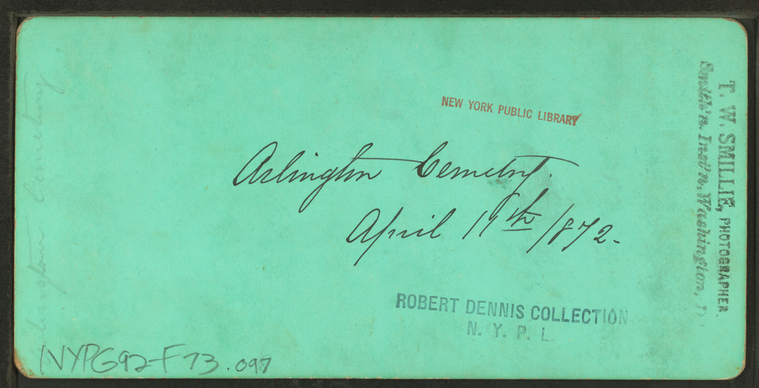 NEW YORK PUBLIC LIBRARY
Arlington Cemetry.
April 19th 1872.
ROBERT DENNIS COLLECTION
N. Y. P. L.
NYPG92-F73.097
T. W. SMILLIE, PHOTOGRAPHER.
Smiths'n Inst'n, Washington,
Arlington Cemetery